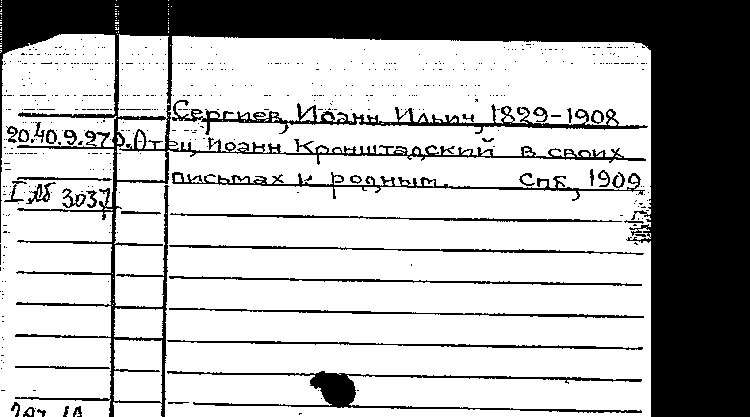 Сергиев, Иоанн Ильич, 1829-1908
20.40.9.279. Отец Иоанн Кронштадский в своих
письмах к родным. Спб., 1909
I,
3037